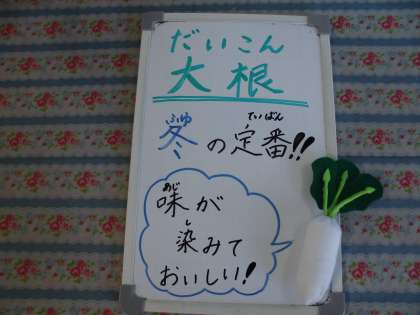 だいこん
大根
ふゆ ていばん
冬の定番!!
あじ
味が
し
染みて
おいしい!